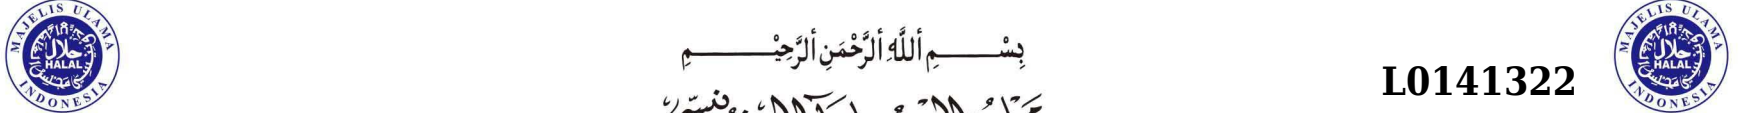 MAJELIS ULAMA INDONESIA
حلال
HALAL
بِسْـــــــمِ أللَّهِ ألرَّحْمَنِ ألرَّحِيْـــــــمِ
L0141322
MAJELIS ULAMA INDONESIA
حلال
HALAL